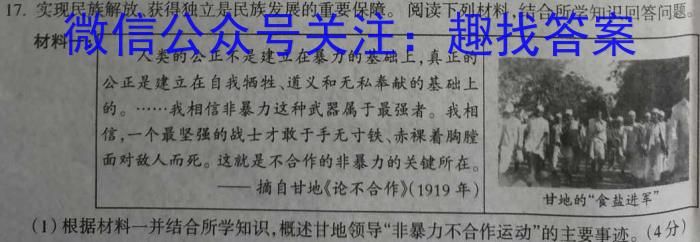 17. 实现民族解放、获得独立是民族发展的重要保障。阅读下列材料,结合所学知识回答问题。
微信公众号关注:趣找答案
材料
人类的公正不是建立在暴力的基础上,真正的
公正是建立在自我牺牲、道义和无私奉献的基础上
的。……我相信非暴力这种武器属于最强者。我相
信,一个最坚强的战士才敢于手无寸铁、赤裸着胸膛
面对敌人而死。这就是不合作的非暴力的关键所在。
——摘自甘地《论不合作》(1919年)
甘地的“食盐进军”
(1)根据材料一并结合所学知识,概述甘地领导“非暴力不合作运动”的主要事迹。(4分)